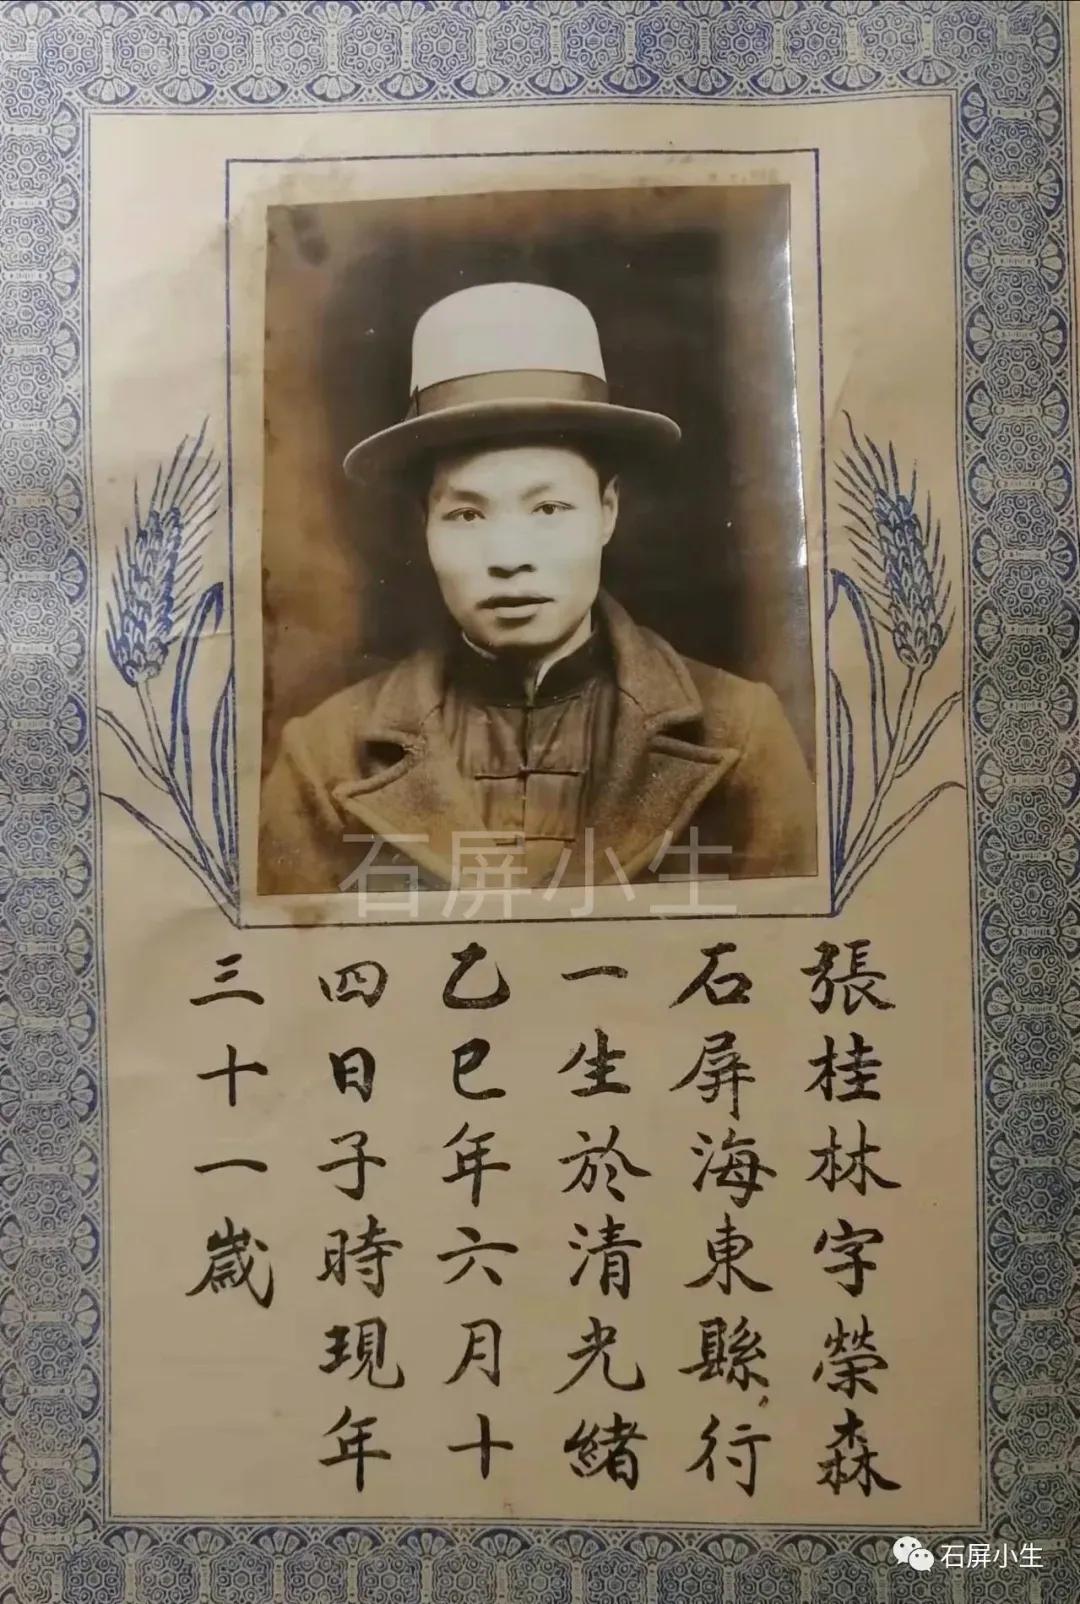 石屏小生
張桂林字榮森
石屏海東縣行
一生於清光緒
乙巳年六月十
四日子時現年
三十一歲
石屏小生